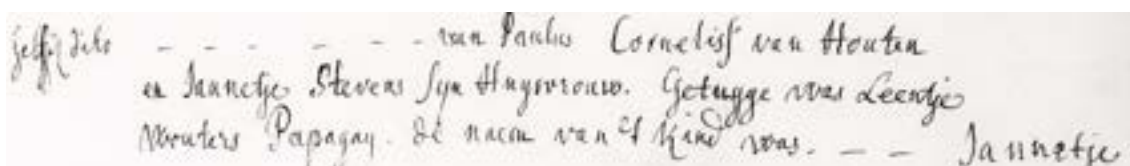 dito - - - - - - van Paulus Cornelisß van Houten
en Jannetje Stevens syn Huysvrouw. Getuygge was Leentje
Wouters Papagay. de naem van 't kind was. - - Jannetje